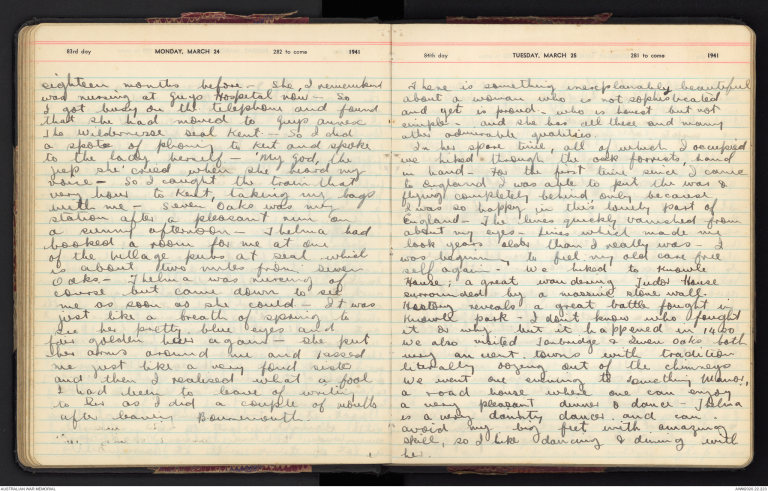 83rd day MONDAY, MARCH 24 282 to come 1941
eighteen months before - She, I remembered
was nursing at Guys Hospital now - So
I got busy on the telephone and found
that she had moved to Guys annexe
The Wildernesse Seal Kent - So I did
a spot of phoning to Kent and spoke
to the lady herself - "My God, the
she cried when she heard my
voice - So I caught the train that
very hour to Kent taking my bags
with me - Seven Oaks was my
station after a pleasant run on
a sunny afternoon - Thelma had
booked a room for me at one
of the village pubs at Seal which
is about two miles from Seven
Oaks - Thelma was nursing of
course but came down to see
me as soon as she could - It was
just like a breath of spring to
see her pretty blue eyes and
fair golden hair again - She put
her arms around me and kissed
me just like a very fond sister
and then I realised what a fool
I had been to leave of writing
to her as I did a couple of months
after leaving Bournemouth.
84th day TUESDAY, MARCH 25 281 to come 1941
There is something inexplainably beautiful
about a woman who is not sophisticated
and yet is proud - who is honest but not
simple - and she has all these and many
other admirable qualities.
In her spare time, all of which I occupied
we hiked through the oak forrests, hand
in hand - For the first time since I came
to England I was able to put the war &
flying completely behind only because
I was so happy in this lovely part of
England - The lines quickly vanished from
about my eyes - lines which made me
look years older than I really was - I
was beginning to feel my old care free
self again - We hiked to Knowle
House; a great wandering Tudor House
surrounded by a massive stone wall.
History reveals a great battle fought in
Knowle park - I don't know who fought
it or why but it happened in 1400
We also visited Tonbridge & Seven Oaks both
very ancient towns with tradition
literally oozing out of the chimneys
We went one evening to something Manor,
a road house where one can enjoy
a very pleasant dinner & dance - Thelma
is a very dainty dancer and can
avoid my big feet with amazing
skill, so I like dancing & dining with
her.
AUSTRALIAN WAR MEMORIAL